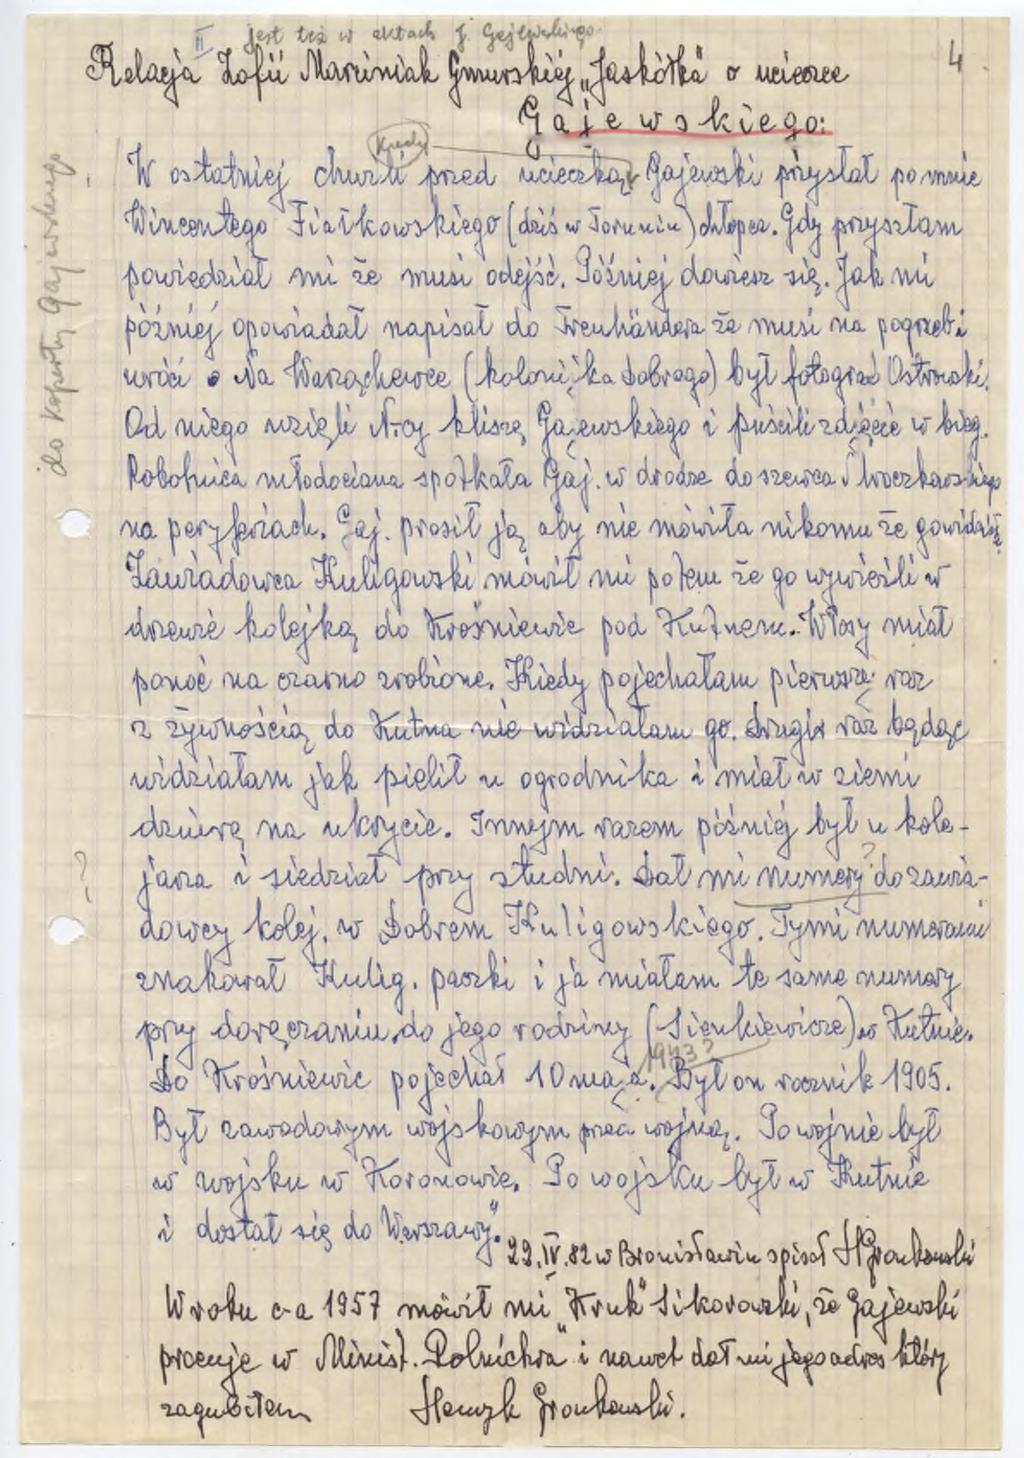 II jest też w aktach J. Gajewskiego
4
Relacja Zofii Marciniak Gmurskiéj „Jaskółka" o ucieczce
Gajewskiego:
Kiedy
W ostatniej chwili przed ucieczką Gajewski przysłał po mnie
Wincentego Fiałkowskiego (dziś w Toruniu) chłopca. Gdy przyszłam
powiedział mi że musi odejść. Później dowiesz się. Jak mi
później opowiadał napisał do Treuhändera że musi na pogrzeb i
wróci. Na Warząchewce (kolonijka Dobrego) był fotograf Ostrowski.
Od niego wzięli N-cy kliszę Gajewskiego i puścili zdjęcie w bieg.
Robotnica młodociana spotkała Gaj. w drodze do szewca Mroczkowskiego
na peryferiach. Gaj. prosił ją aby nie mówiła nikomu że go widziała
Zawiadowca Kuligowski mówił mi potem że go wywieźli w
drzewie kolejką do Krośniewic pod Kutnem. Włosy miał
ponoć na czarno zrobione. Kiedy pojechałam pierwszy raz
z żywnością do Kutna nie widziałam go. Drugi raz będąc
widziałam jak pielił u ogrodnika i miał w ziemi
dziurę na ukrycie. Innejm razem późniéj był u kole-
jarza i siedział przy studni. Dał mi numery ? do zawia-
dowcy kolej. w Dobrem Kuligowskiego. Tymi numerami
znakował Kulig. paczki i ja miałam te same numery
przy doręczaniu do jego rodziny (Sienkiewicze) w Kutnie.
1943?
Do Krośniewic pojechał 10 maja. Był on rocznik 1905.
Był zawodowym wojskowym przed wojną. Po wojnie był
w wojsku w Koronowie. Po wojsku był w Kutnie
i dostał się do Warszawy".
22.IV.82 w Bronisławiu spisał H Gronkowski
W roku c-a 1957 mówił mi „Kruk" Sikorowski, że Gajewski
pracuje w Minist. Rolnictwa i nawet dał mi jego adres który
zagubiłem Henryk Gronkowski.
do koperty Gajewskiego
- ?